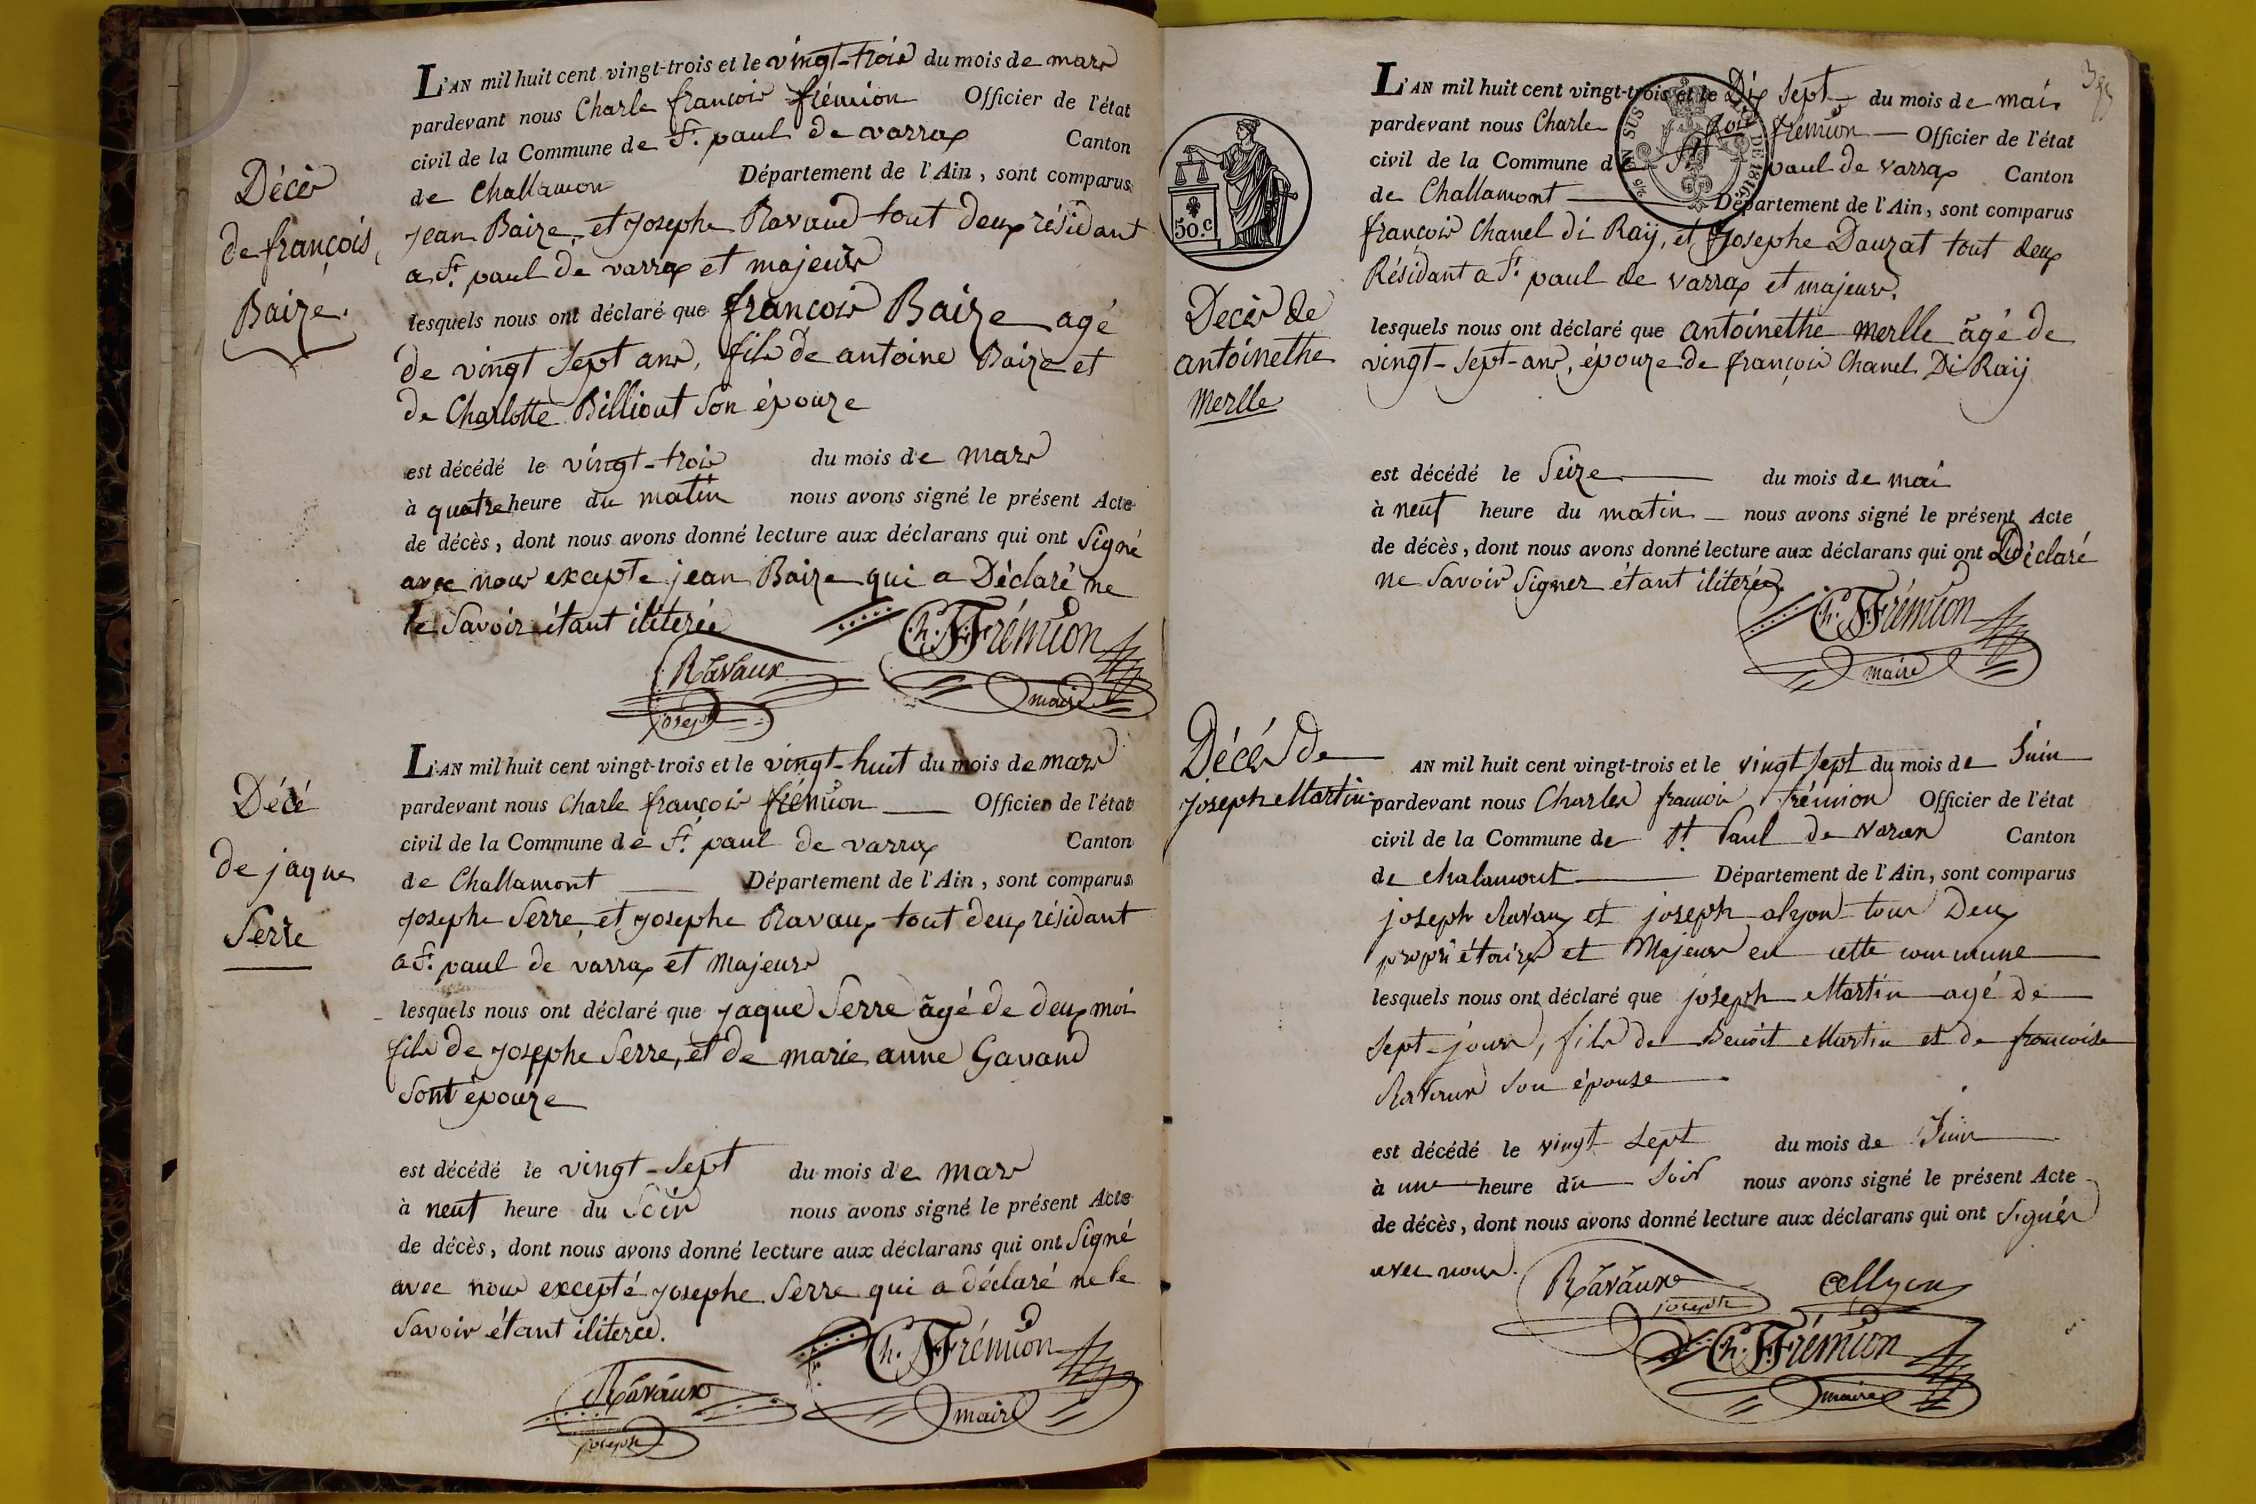 Décès
de françois
Baize.
L'AN mil huit cent vingt-trois et le vingt-trois du mois de mars
pardevant nous Charle françois frémion Officier de l'état
civil de la Commune de St. paul de varrax Canton
de Challamon Département de l'Ain, sont comparus
jean Baize, et josephe Ravaud tout deux résidant
a St. paul de varrax et majeurs
lesquels nous ont déclaré que françois Baize agé
de vingt sept ans, fils de antoine Baize et
de Charlotte Billiout son épouze
est décédé le vingt-trois du mois de mars
à quatre heure du matin nous avons signé le présent Acte
de décès, dont nous avons donné lecture aux déclarans qui ont Signé
avec nous excepte jean Baize qui a Déclaré ne
le Savoir étant ilitérée
Ravaux
joseph
Ch. F. Frémion
maire
Décé
de jaque
Serre
L'AN mil huit cent vingt-trois et le vingt-huit du mois de mars
pardevant nous Charle françois frémion Officier de l'état
civil de la Commune de St. paul de varrax Canton
de Challamont Département de l'Ain, sont comparus
josephe Serre, et josephe Ravaux tout deux résidant
a St. paul de varrax et majeurs
lesquels nous ont déclaré que jaque Serre âgé de deux moi
fils de josephe Serre, et de marie anne Gavand
Sont épouze
est décédé le vingt-sept du mois de mars
à neuf heure du Soir nous avons signé le présent Acte
de décès, dont nous avons donné lecture aux déclarans qui ont Signé
avec nous excepté josephe Serre qui a déclaré ne le
Savoir étant iliterée.
Ravaux
joseph
Ch. F. Frémion
maire
50.c
EN SUS
DE 1816.
Decès de
antoinethe
Merlle
L'AN mil huit cent vingt-trois et le Dix Sept du mois de mai
pardevant nous Charle frois frémion Officier de l'état
civil de la Commune de St. paul de varrax Canton
de Challamont Département de l'Ain, sont comparus
françois Chanel di Raÿ, et Josephe Dauzat tout deux
Résidant a St. paul de varrax et majeurs.
lesquels nous ont déclaré que antoinethe merlle âgé de
vingt-sept-ans, épouze de françois Chanel Di Raÿ
est décédé le Seize du mois de mai
à neuf heure du matin nous avons signé le présent Acte
de décès, dont nous avons donné lecture aux déclarans qui ont Déclaré
ne Savoir Signer étant ilitérée
Ch. F. Frémion
maire
Décés de
joseph Martin
AN mil huit cent vingt-trois et le vingt Sept du mois de Juin
pardevant nous Charles françois frémion Officier de l'état
civil de la Commune de St. Paul de Varax Canton
de Chalamont Département de l'Ain, sont comparus
joseph Ravaux et joseph alyon tous Deux
propriétaires et Majeurs en cette commune
lesquels nous ont déclaré que joseph Martin agé de
Sept-jours, fils de Benoit Martin et de francoise
Ravaux Son épouse
est décédé le vingt Sept du mois de Juin
à une heure du Soir nous avons signé le présent Acte
de décès, dont nous avons donné lecture aux déclarans qui ont Signér
avec nous.
Ravaux
joseph
Allyon
Ch. F. Frémion
maire